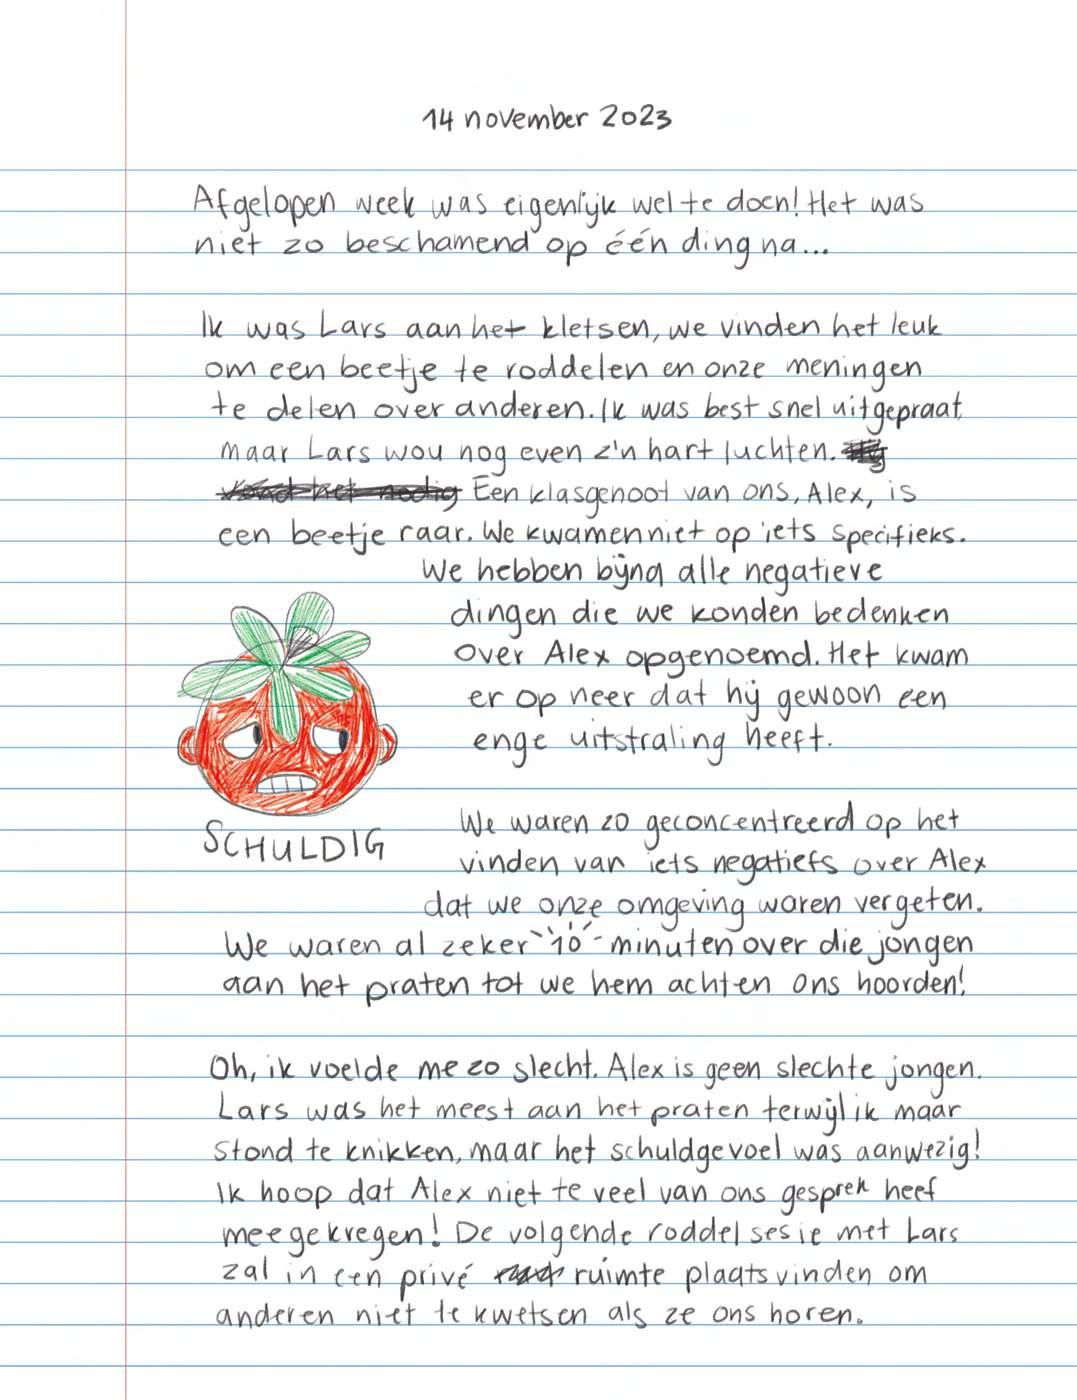 14 november 2023
Afgelopen week was eigenlijk wel te doen! Het was
niet zo beschamend op één ding na...
Ik was Lars aan het kletsen, we vinden het leuk
om een beetje te roddelen en onze meningen
te delen over anderen. Ik was best snel uitgepraat,
maar Lars wou nog even z'n hart luchten.
Een klasgenoot van ons, Alex, is
een beetje raar. We kwamen niet op iets specifieks.
We hebben bijna alle negatieve
dingen die we konden bedenken
over Alex opgenoemd. Het kwam
er op neer dat hij gewoon een
enge uitstraling heeft.
SCHULDIG
We waren zo geconcentreerd op het
vinden van iets negatiefs over Alex
dat we onze omgeving waren vergeten.
We waren al zeker 10 minuten over die jongen
aan het praten tot we hem achten ons hoorden!
Oh, ik voelde me zo slecht. Alex is geen slechte jongen.
Lars was het meest aan het praten terwijl ik maar
stond te knikken, maar het schuldgevoel was aanwezig!
Ik hoop dat Alex niet te veel van ons gesprek heef
meegekregen! De volgende roddel sessie met Lars
zal in een privé ruimte plaatsvinden om
anderen niet te kwetsen als ze ons horen.